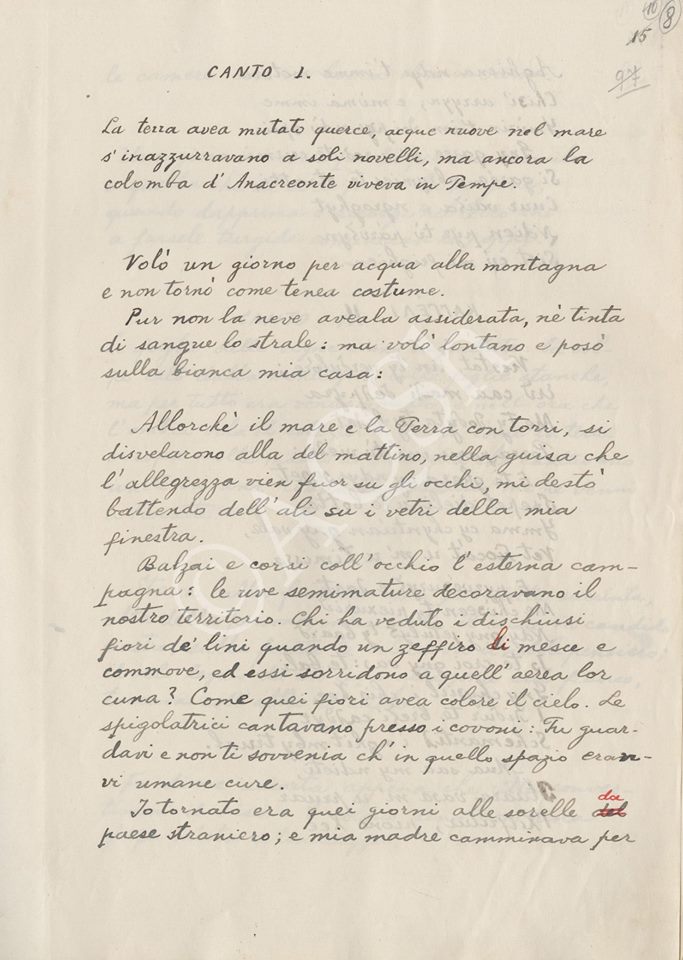 10
8
15
97
CANTO I.
La terra avea mutato querce, acque nuove nel mare
s'inazzurravano a soli novelli, ma ancora la
colomba d'Anacreonte viveva in Tempe.
Volò un giorno per acqua alla montagna
e non tornò come tenea costume.
Pur non la neve aveala assiderata, nè tinta
di sangue lo strale: ma volò lontano e posò
sulla bianca mia casa:
Allorchè il mare e la Terra con torri, si
disvelarono alla del mattino, nella guisa che
l'allegrezza vien fuor su gli occhi, mi destò
battendo dell'ali su i vetri della mia
finestra.
Balzai e corsi coll'occhio l'esterna cam-
pagna: le uve semimature decoravano il
nostro territorio. Chi ha veduto i dischiusi
fiori de' lini quando un zeffiro li mesce e
commove, ed essi sorridono a quell'aerea lor
cuna? Come quei fiori avea colore il cielo. Le
spigolatrici cantavano presso i covoni: Tu guar-
davi e non ti sovvenia ch'in quello spazio eran-
vi umane cure.
Io tornato era quei giorni alle sorelle del da
paese straniero; e mia madre camminava per